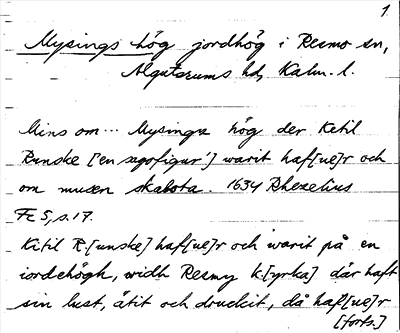 1
Mysings hög jordhög i Resmo sn,
Algutsrums hd, Kalm. l.
Mins om ... Mysings hög der Ketil
Runske [en sagofigur'] warit haf[ue]r och
om musen skabota. 1634 Rhezelius
Fc 5, s. 17.
Kitil R.[unske] haf[ue]r och warit på en
iordehögh, widh Resmy k.[yrka] där haft
sin lust, ätit och druckit, då haf[ue]r
[forts.]